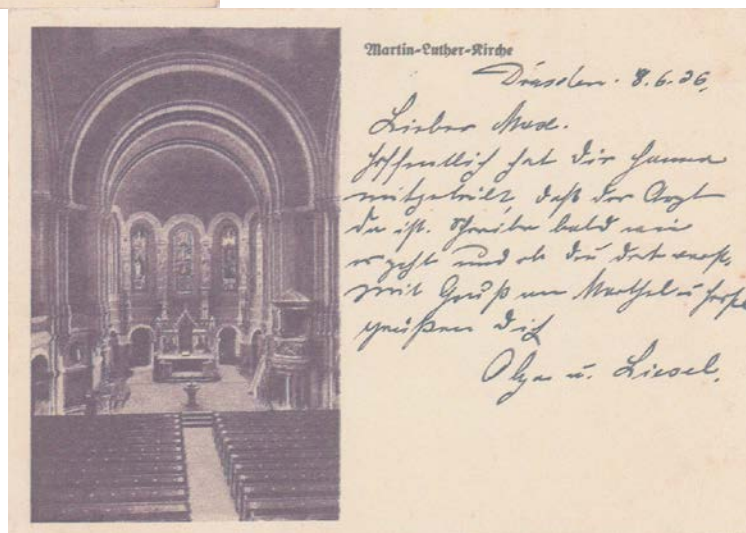 Martin-Luther-Kirche
Dresden. 8.6.36.
Lieber Max.
Hoffentlich hat dir Hanna
mitgeteilt, daß der Arzt
da ist. Schreibe bald wie
es geht und ob du
mit Gruß an Marthel u
grüßen Dich
Olga u. Liesel.